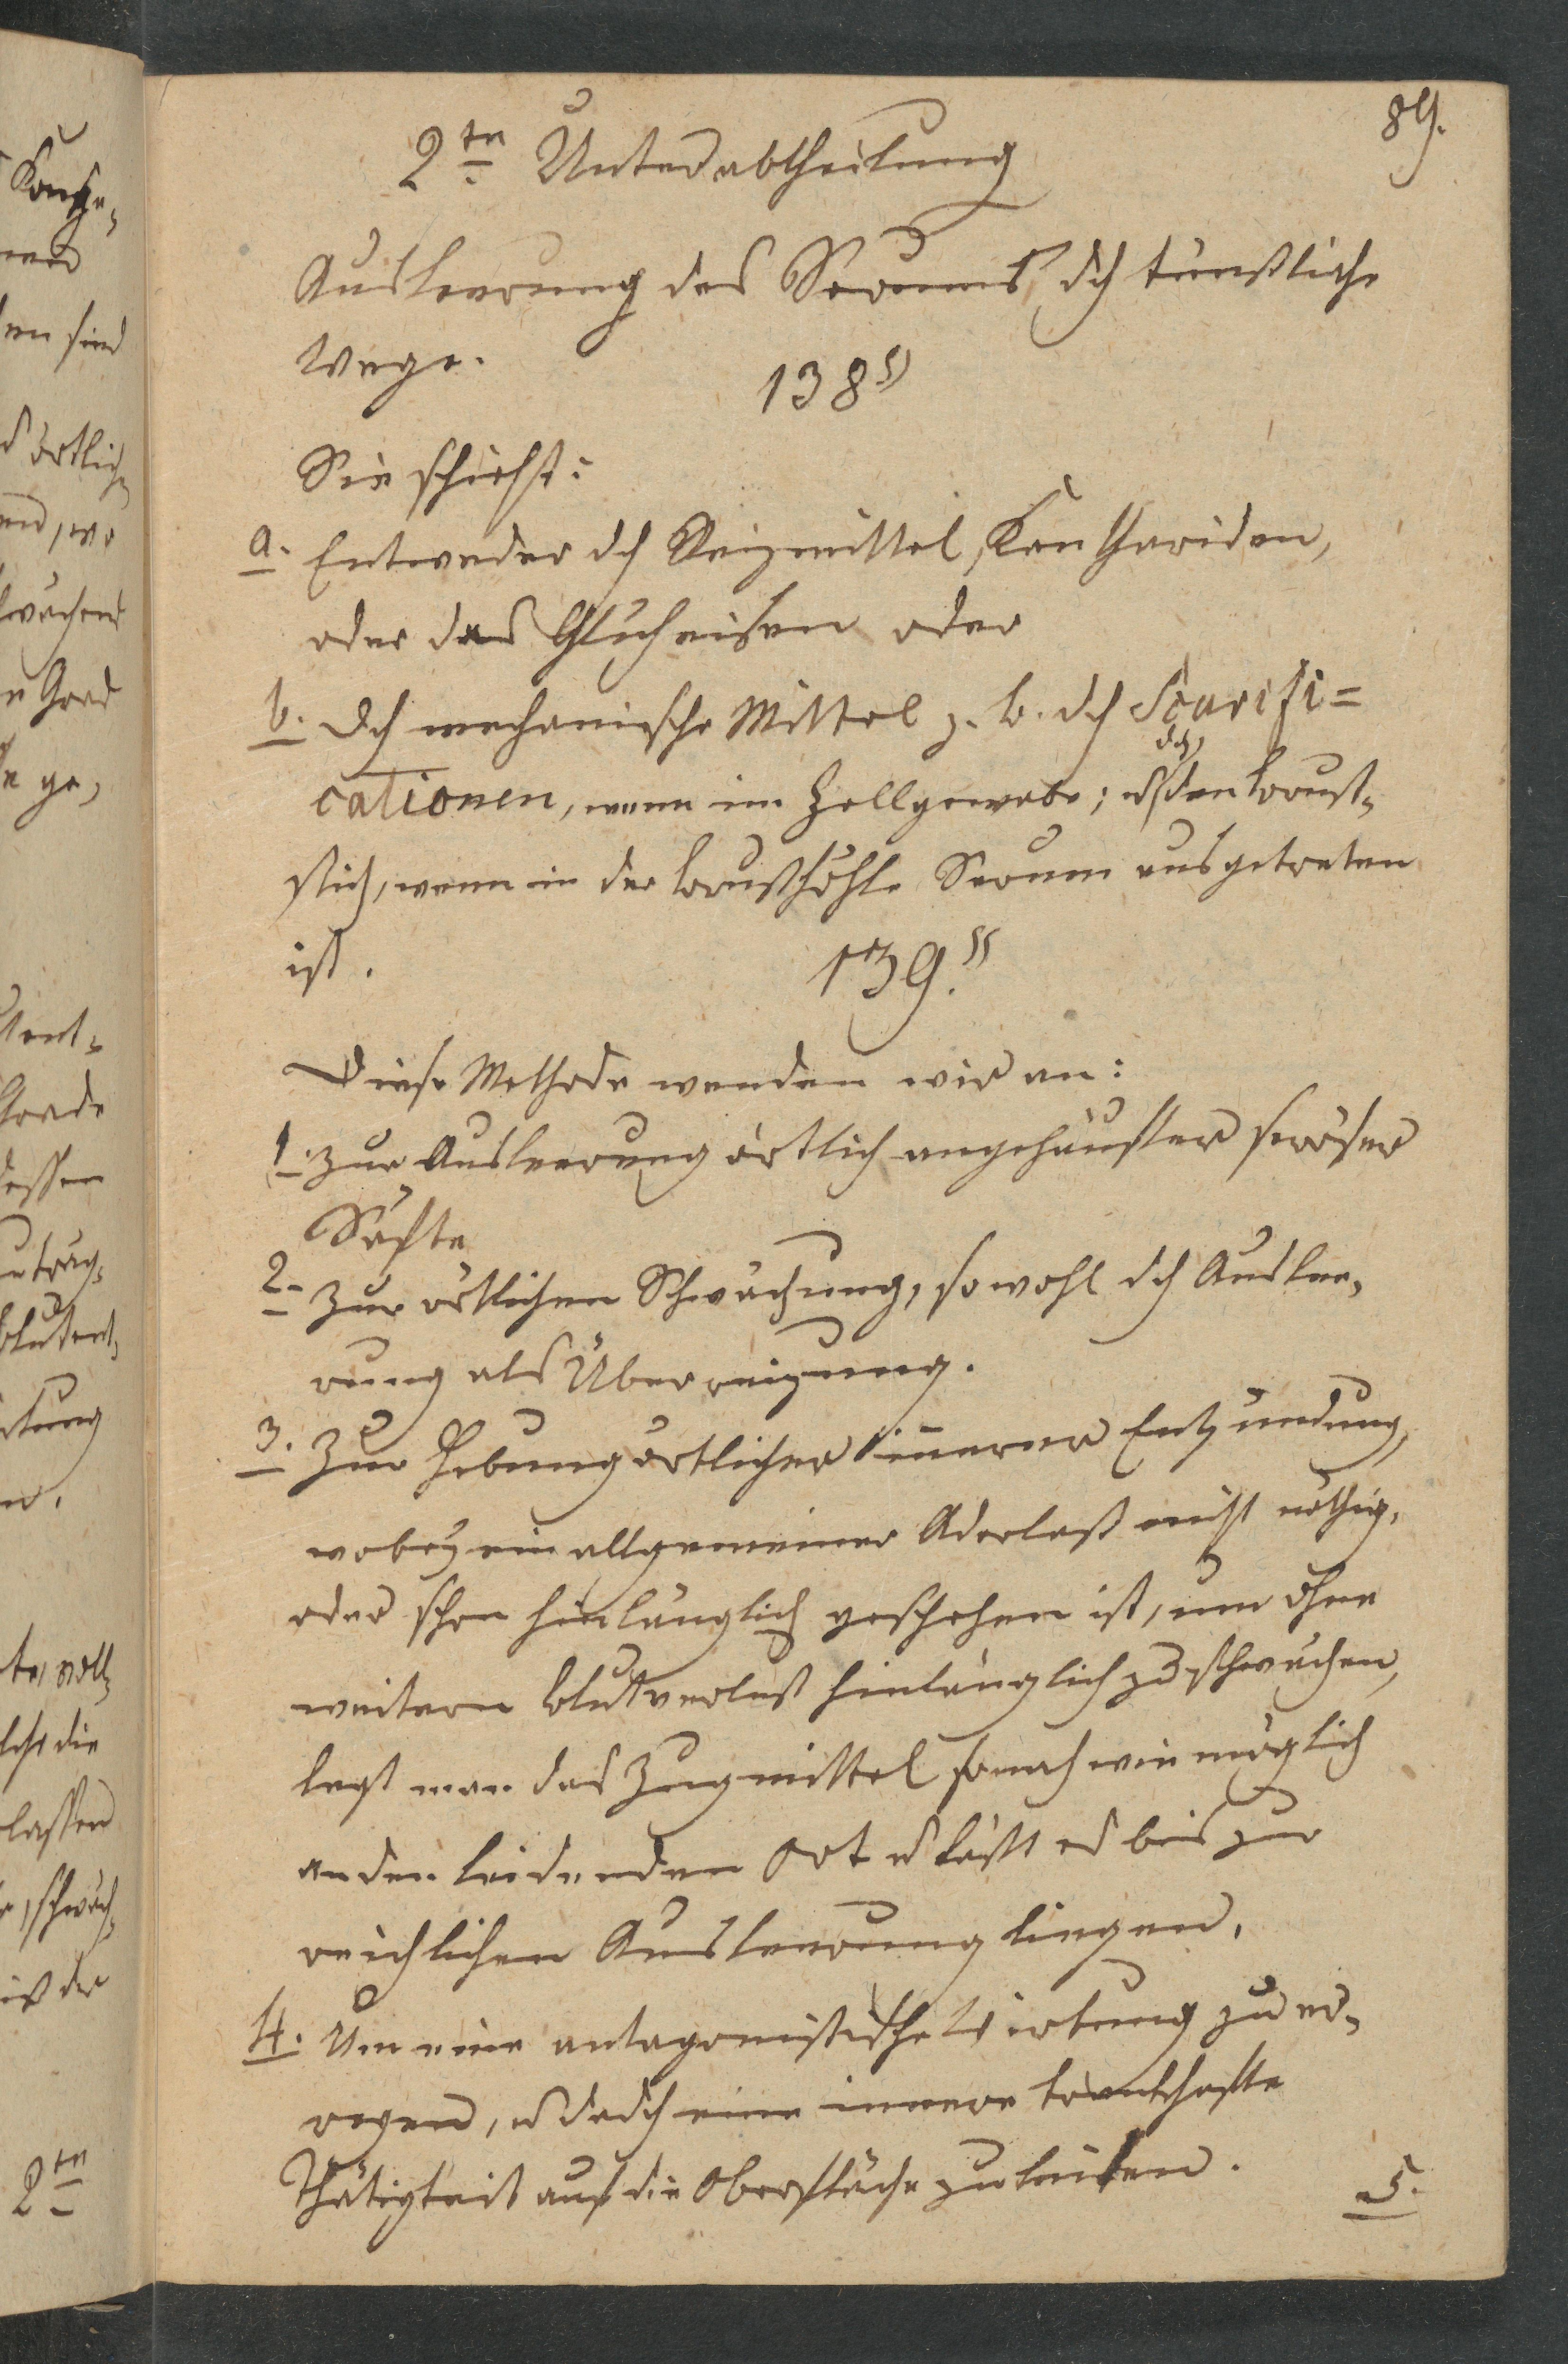 89.
2te Unterabtheilung
Ausleerung des Serums dch künstliche
Wege.
138 §
Sie schieht:
a. Entweder dch Reizmittel, Kanthariden,
oder das Glüheisen oder
b. dch mechanische Mittel z. B. dch Scarifi=
cationen, wenn im Zellgewebe; u dch den Brust-
stich, wenn in der Brusthöhle Serum ausgetreten
ist.
139. §
Diese Methode wenden wir an:
1. zur Ausleerung örtlich angehäufter seröser
Säfte
2. zur örtlichen Schwächung, sowohl dch Auslee-
rung als Überreizung.
3. Zur Hebung örtlicher innerer Entzündung,
wobey ein allgemeiner Aderlaß nicht nöthig,
oder schon hinlänglich geschehen ist, um ohne
weitern Blutverlust hinlänglich zu schwächen,
legt man das Zugmittel so nah wie möglich
an den leidenden Ort u läßt es bis zur
reichlichen Ausleerung liegen.
4. Um eine antagonistische Wirkung zu er-
regen, u dadch eine innere krankhafte
Thätigkeit auf die Oberfläche zu leiten.
5.